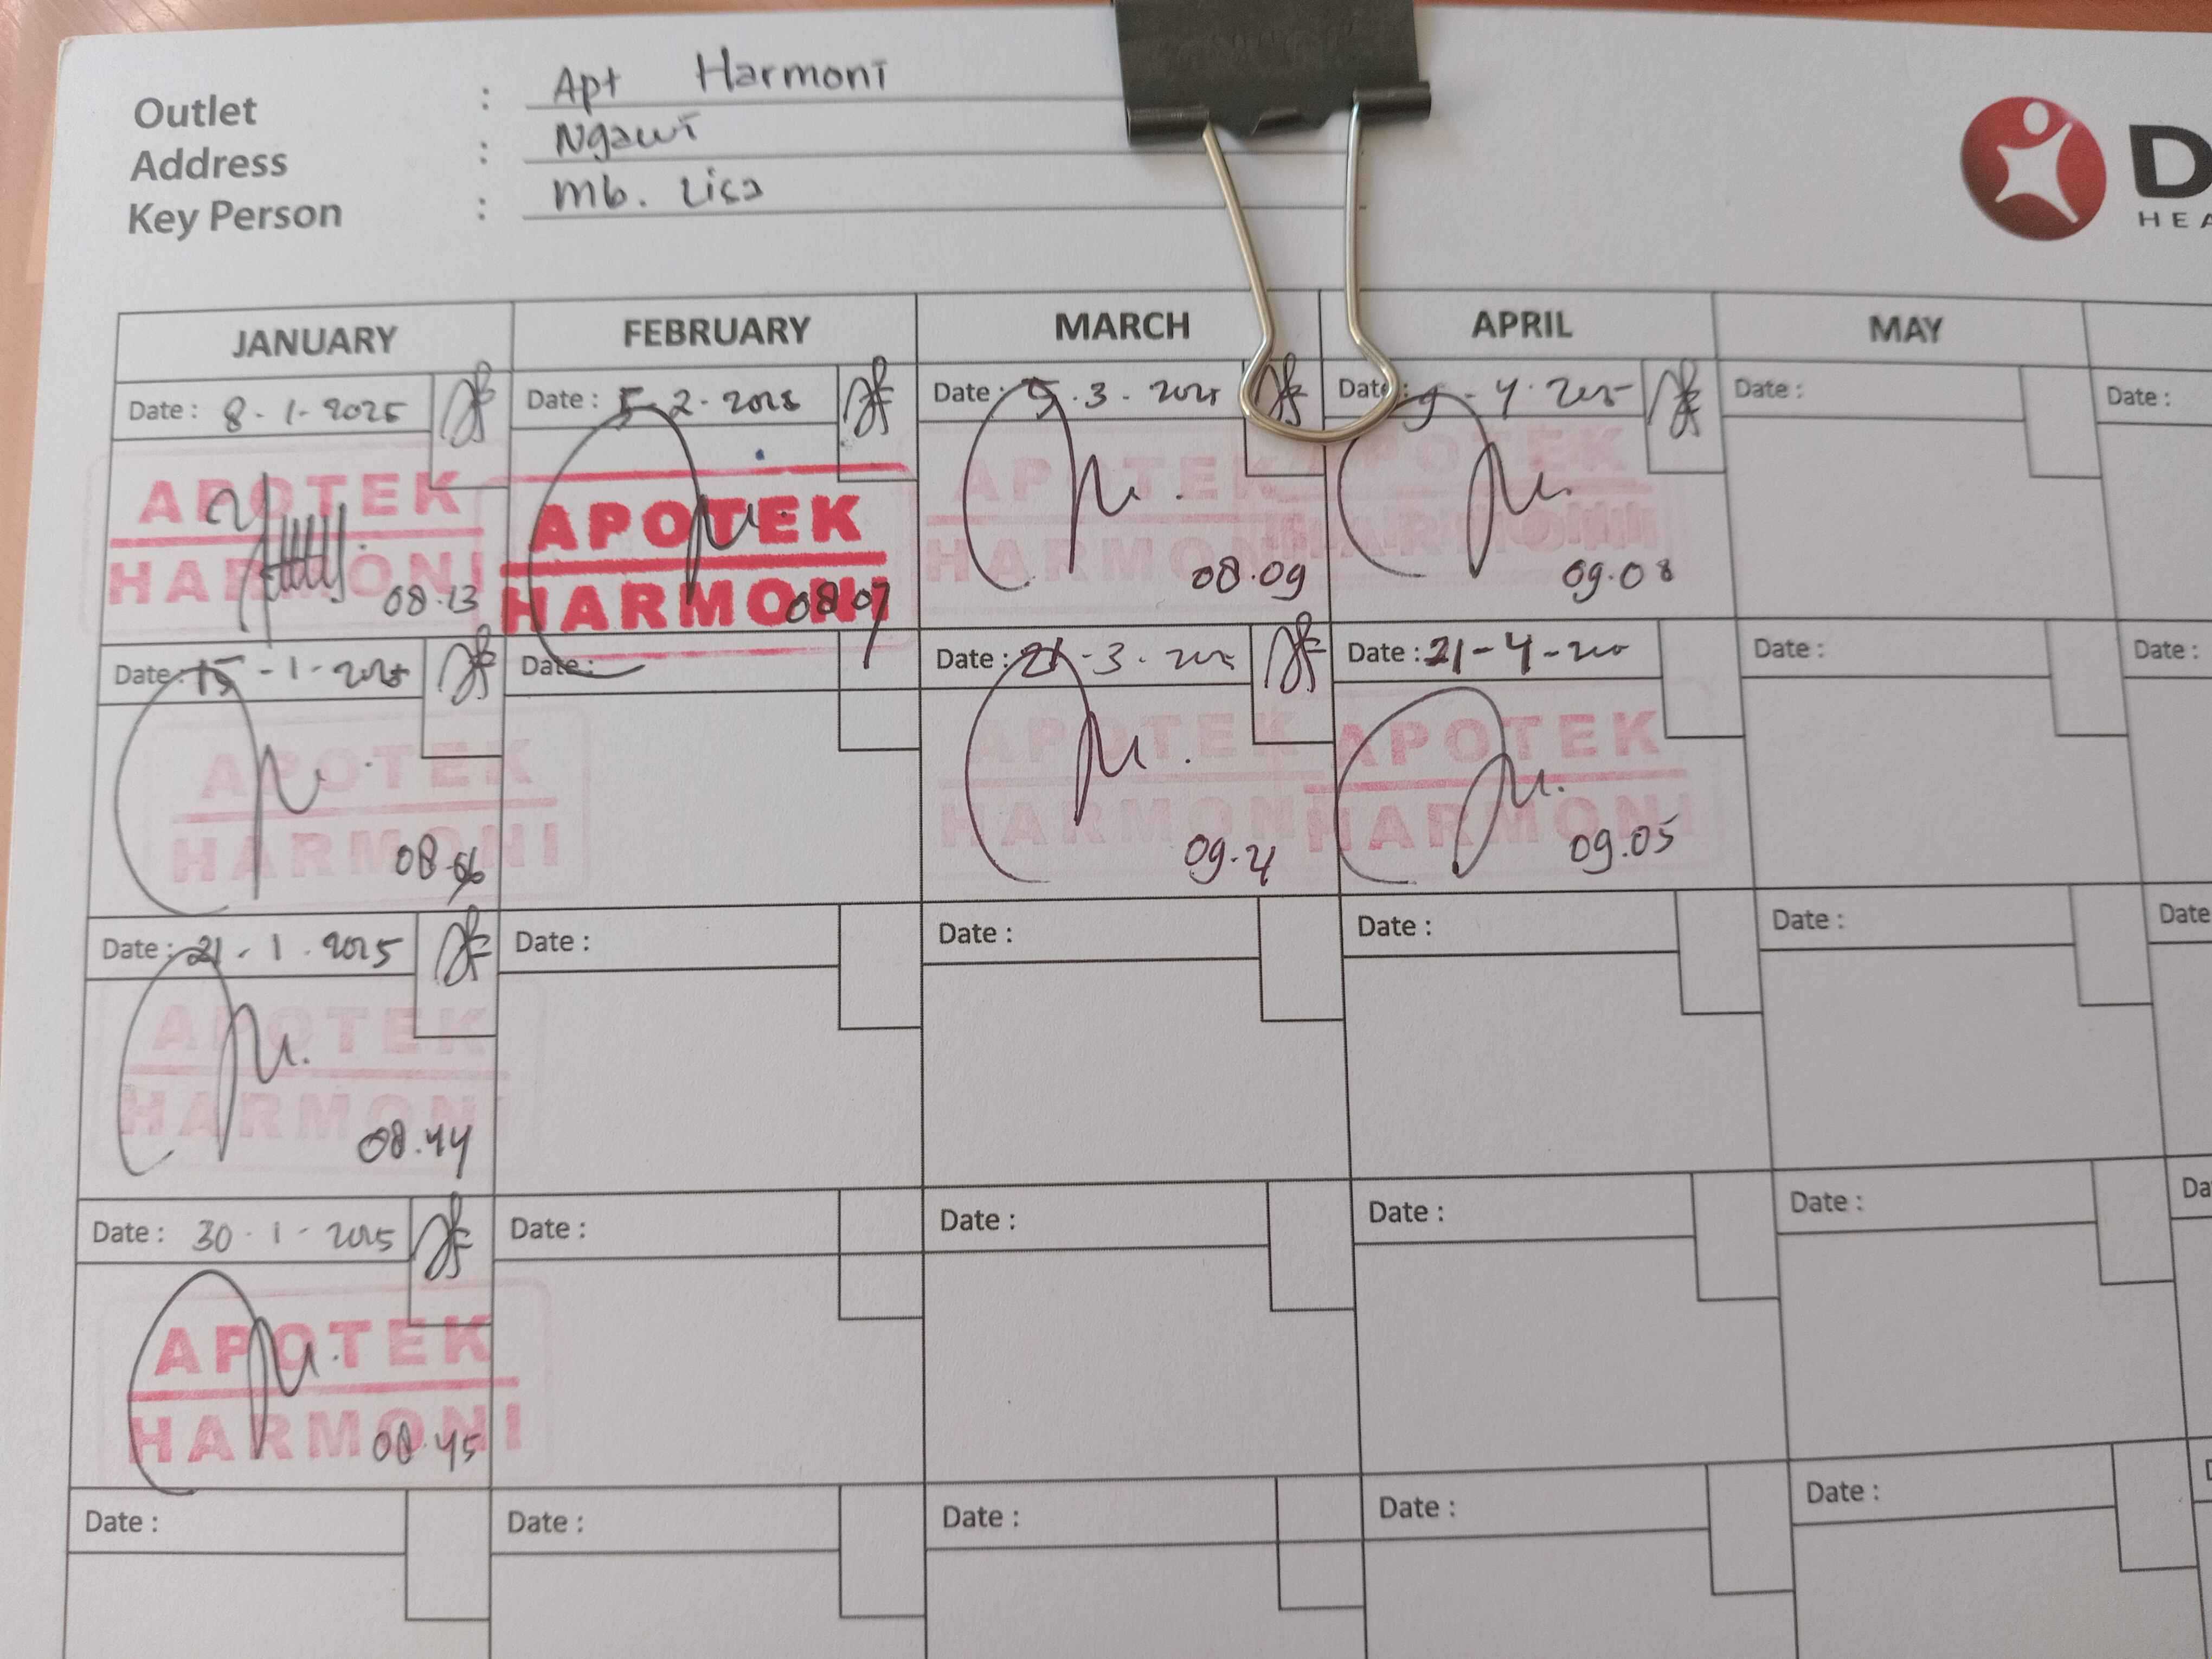 Outlet : Apt Harmoni
Address : Ngawi
Key Person : Mb. Lisa
D
HEA
JANUARY FEBRUARY MARCH APRIL MAY
Date : 8-1-2025 Date : 5-2-2025 Date : 5.3-2025 Date : 9-4-2025 Date : Date :
APOTEK APOTEK APOTEK APOTEK
HARMONI HARMONI HARMONI HARMONI
08.13 08.07 08.09 09.08
Date : 15-1-2025 Date : Date : 21-3-202 Date : 21-4-20 Date : Date :
APOTEK APOTEK APOTEK
HARMONI HARMONI HARMONI
08. 09.21 09.05
Date : 21-1-2025 Date : Date : Date : Date : Date
APOTEK
HARMONI
08.44
Date : 30-1-2025 Date : Date : Date : Date : Da
APOTEK
HARMONI
08.45
Date : Date : Date : Date : Date :